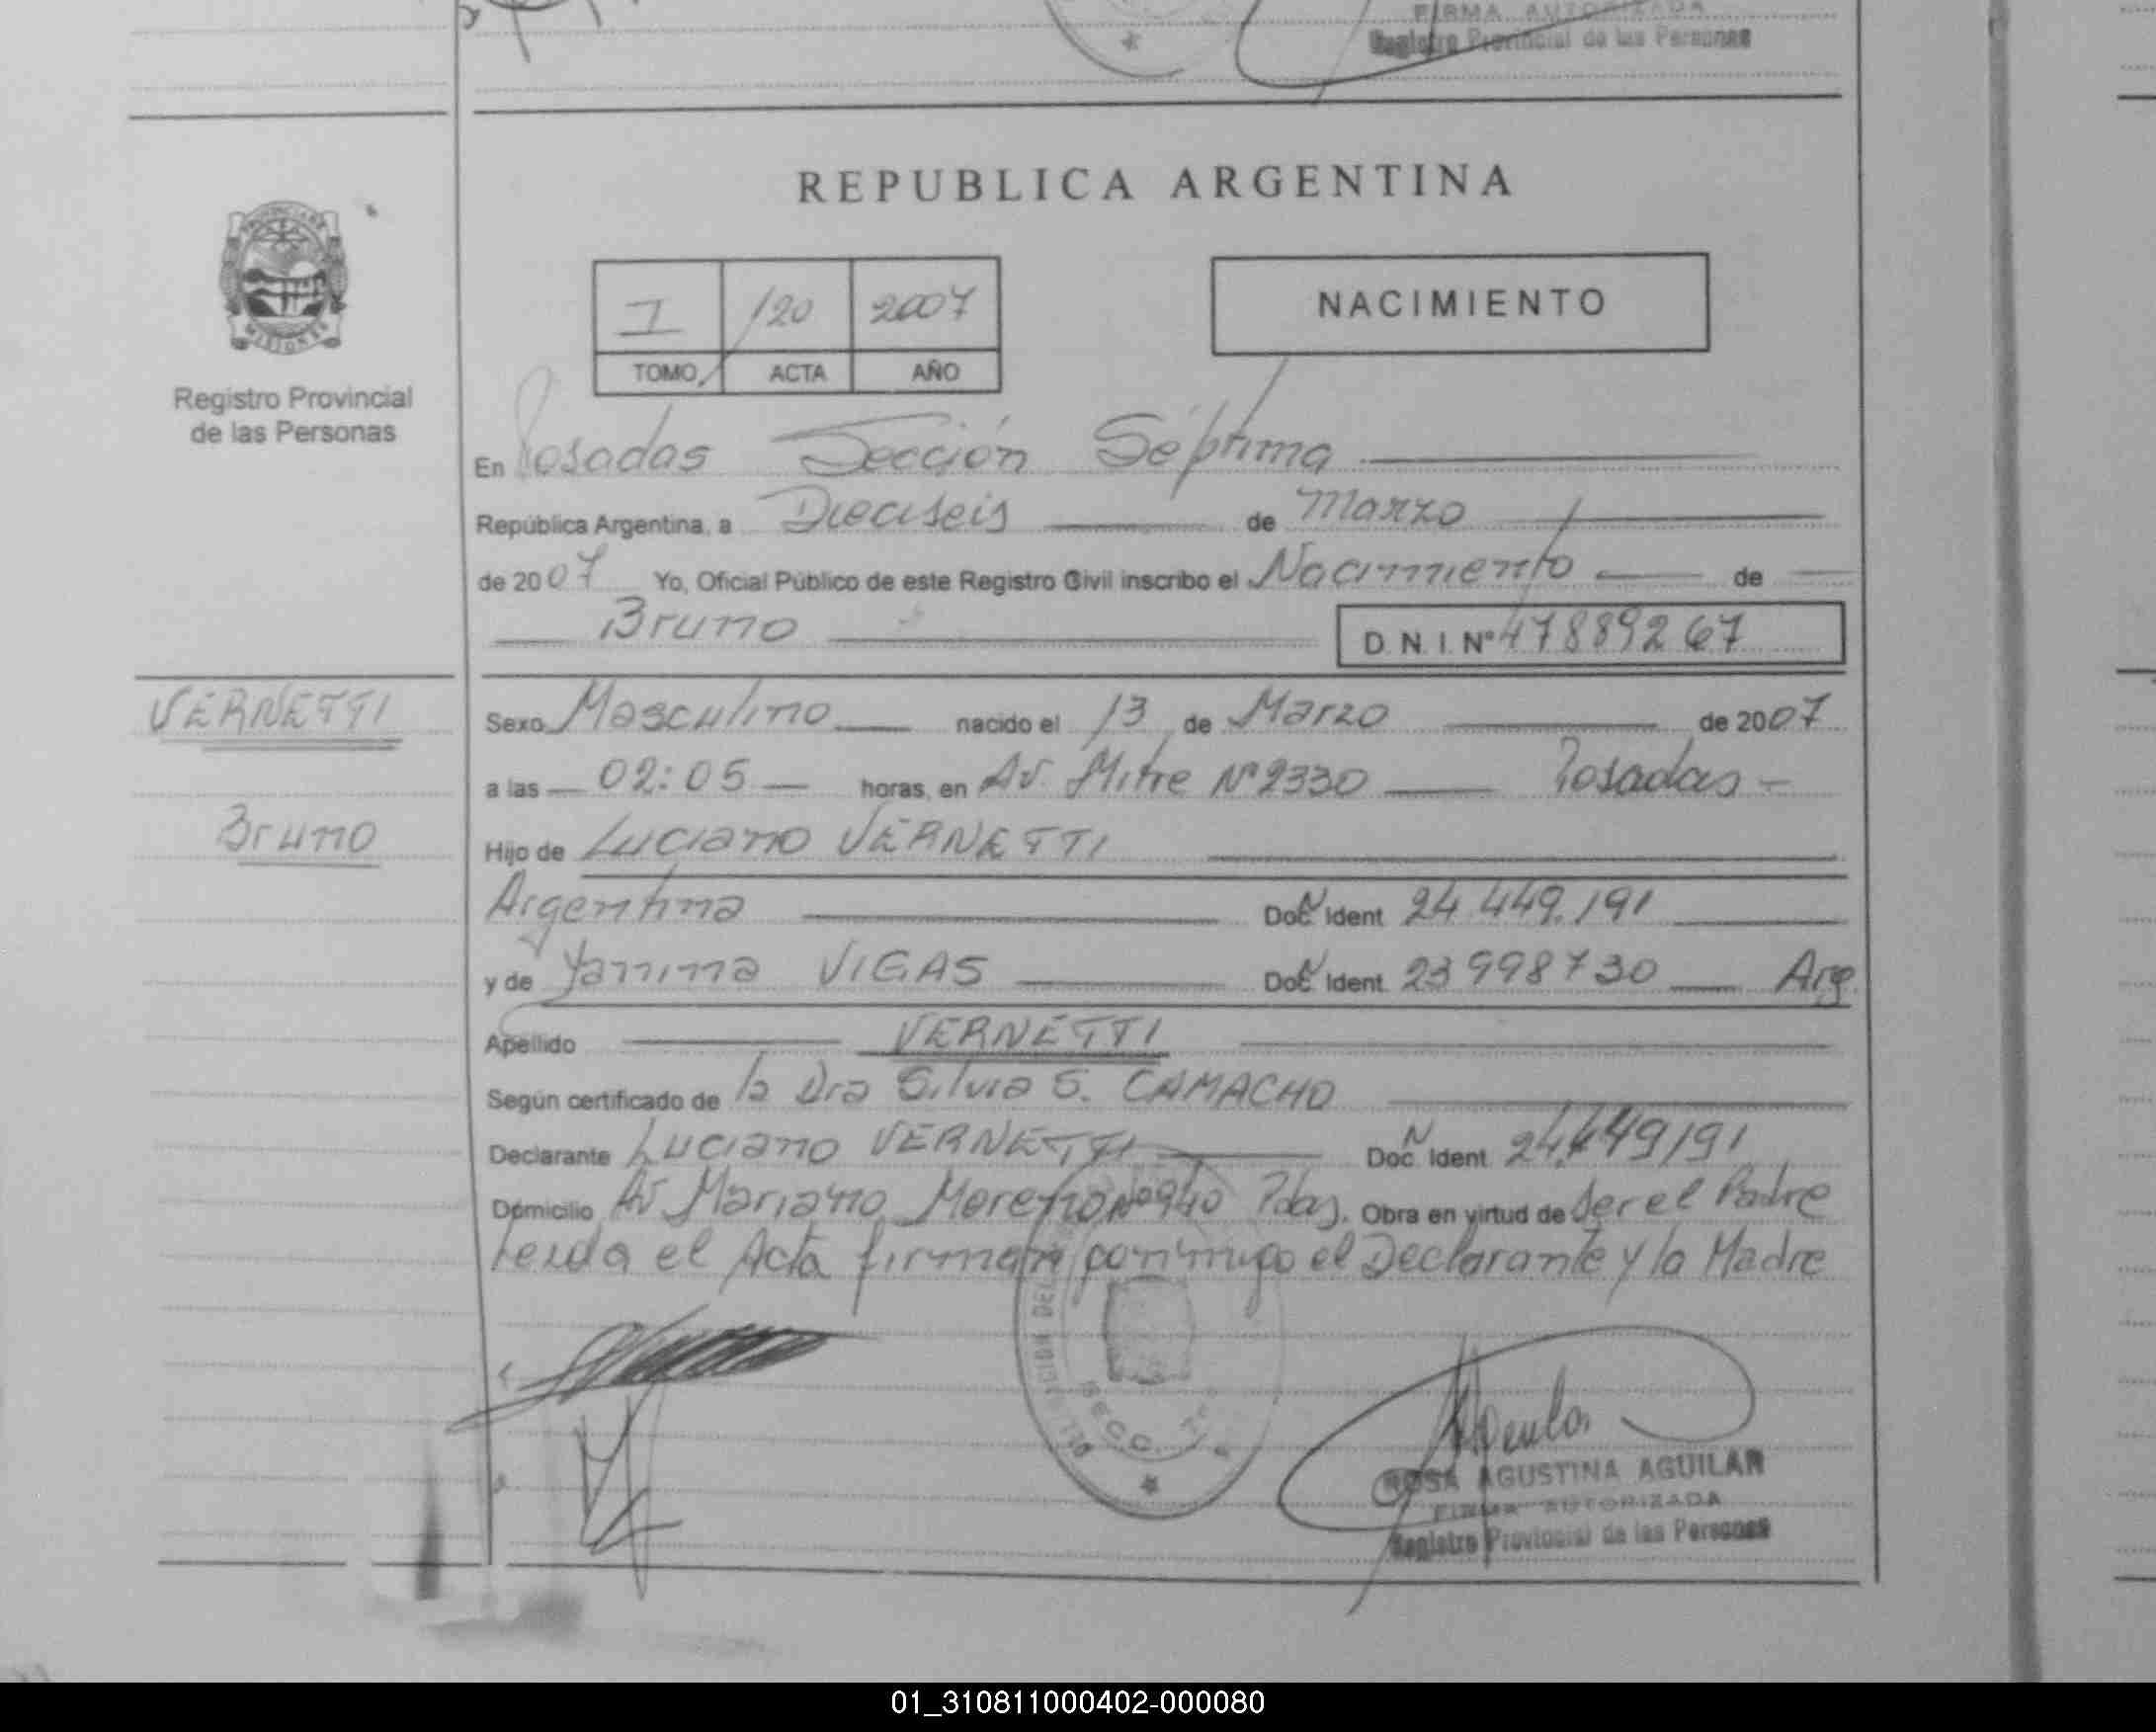 FIRMA AUTORIZADA
Registro Provincial de las Personas
REPUBLICA ARGENTINA
I 120 2007
TOMO ACTA AÑO
NACIMIENTO
Registro Provincial
de las Personas
En Posadas Sección Séptima
República Argentina, a Dieciseis de Marzo
de 2007 Yo, Oficial Público de este Registro Civil inscribo el Nacimiento de
Bruno D. N. I. Nº 47889267
VERNETTI
Sexo Masculino nacido el 13 de Marzo de 2007
a las 02:05 horas, en Av. Mitre Nº 2330 Posadas
Bruno
Hijo de Luciano VERNETTI
Argentina Doc Ident 24.449.191
y de Yanina VIGAS Doc Ident. 23998730 Arg.
Apellido VERNETTI
Según certificado de la Dra Silvia S. CAMACHO
Declarante Luciano VERNETTI Doc Ident. 24.449191
Domicilio Av Mariano Moreno Nº 940 Pdas. Obra en virtud de Ser el Padre
Leida el Acta firman conmigo el Declarante y la Madre
SECC.
ROSA AGUSTINA AGUILAR
FIRMA AUTORIZADA
Registro Provincial de las Personas
01_310811000402-000080